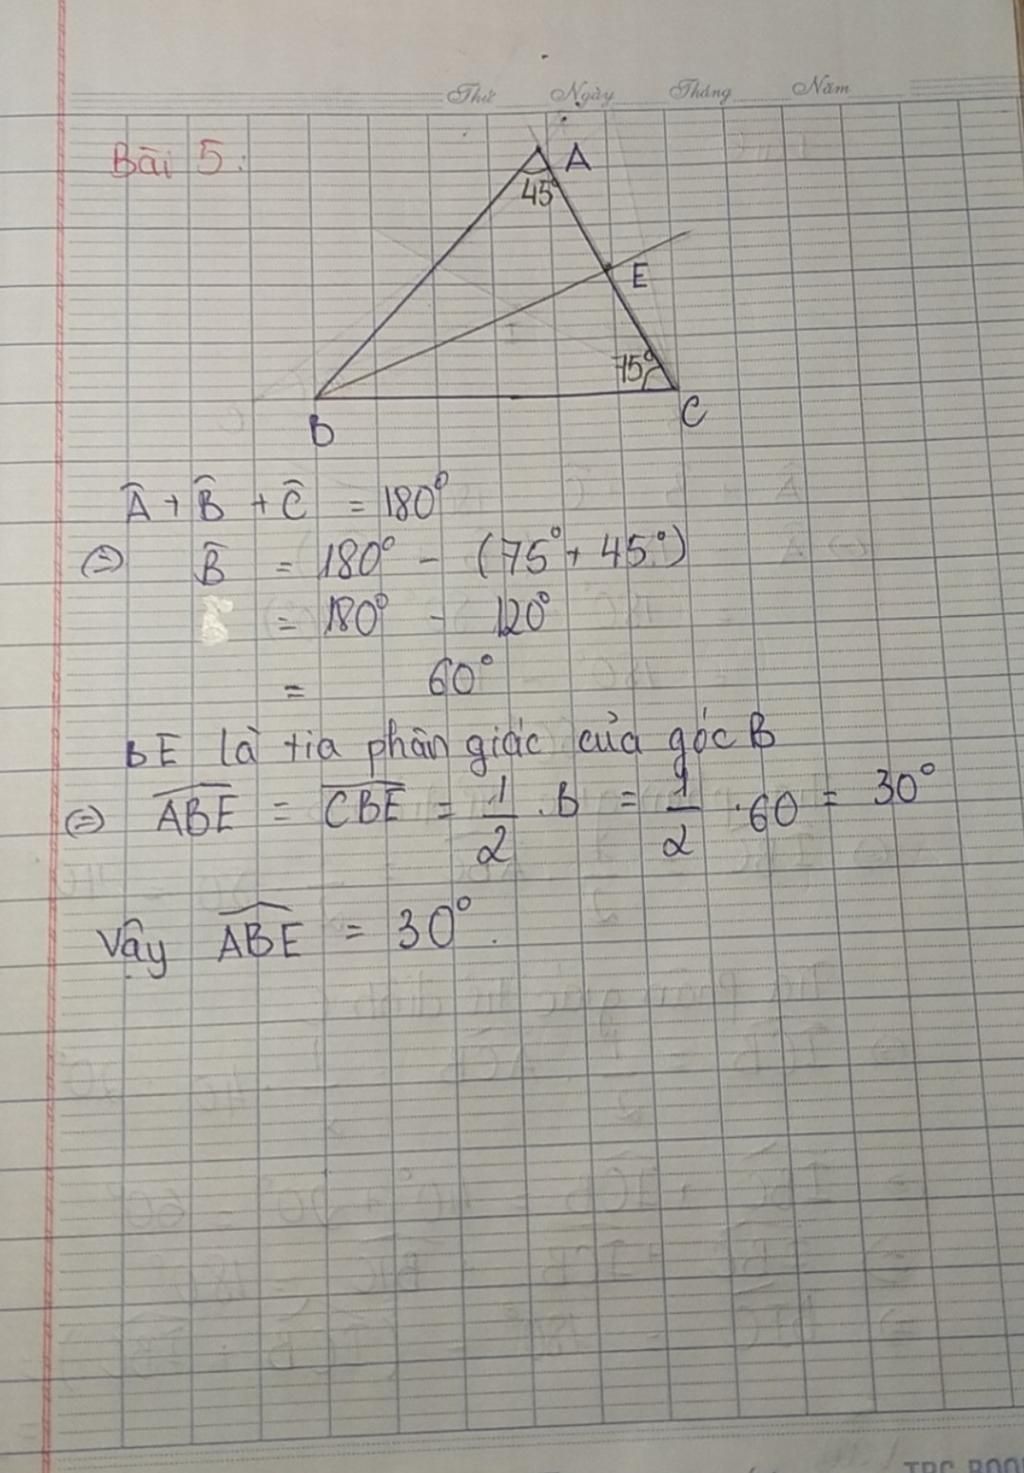 Thứ Ngày Tháng Năm
Bài 5:
A
45°
E
75°
B
C
Â + B̂ + Ĉ = 180°
⇔ B̂ = 180° - (75° + 45°)
= 180° - 120°
= 60°
BE là tia phân giác của góc B
⇔ \widehat{ABE} = \widehat{CBE} = 1/2 . B = 1/2 . 60 = 30°
Vậy \widehat{ABE} = 30°.